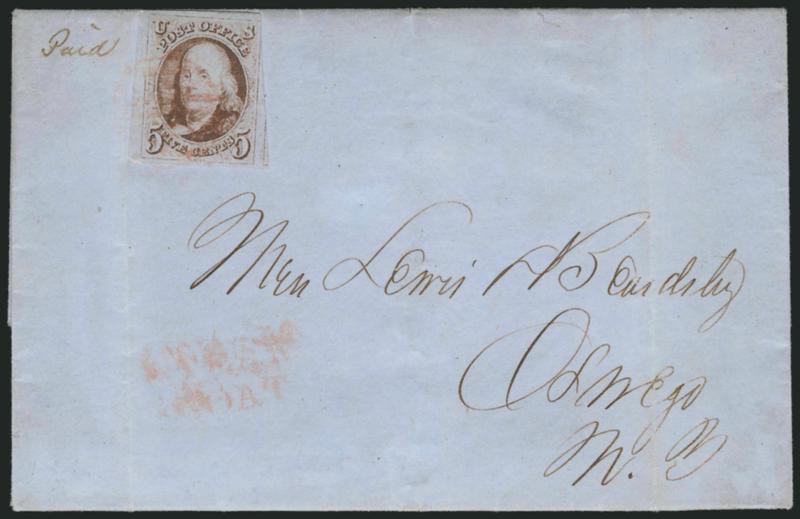 Paid
U S
POST OFFICE
FIVE CENTS
5 5
Lewis Beardsley
Oswego
N. Y